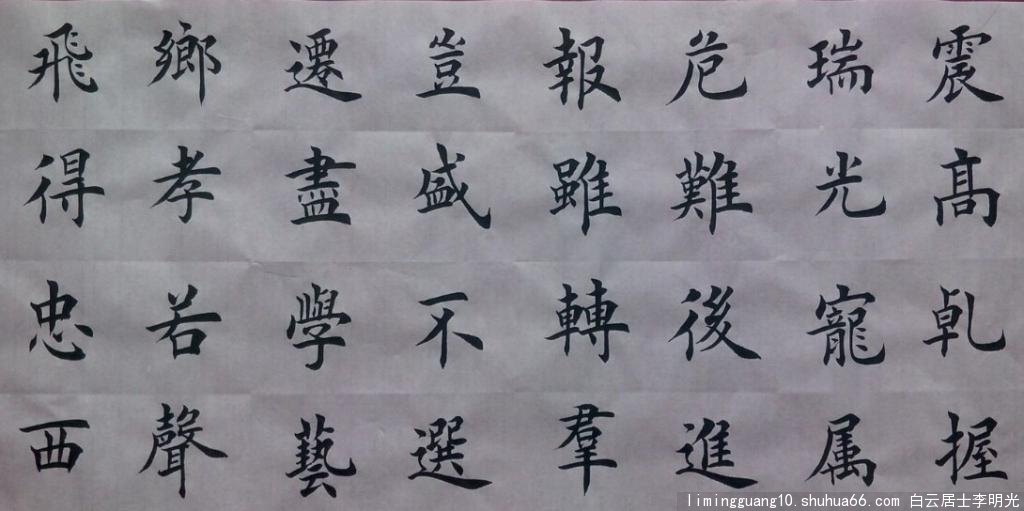 震髙乹握
瑞光寵属
難後進
報雖轉羣
豈盛不選
遷盡學藝
鄉孝若聲
飛得忠西
limingguang10.shuhua66.com 白云居士李明光